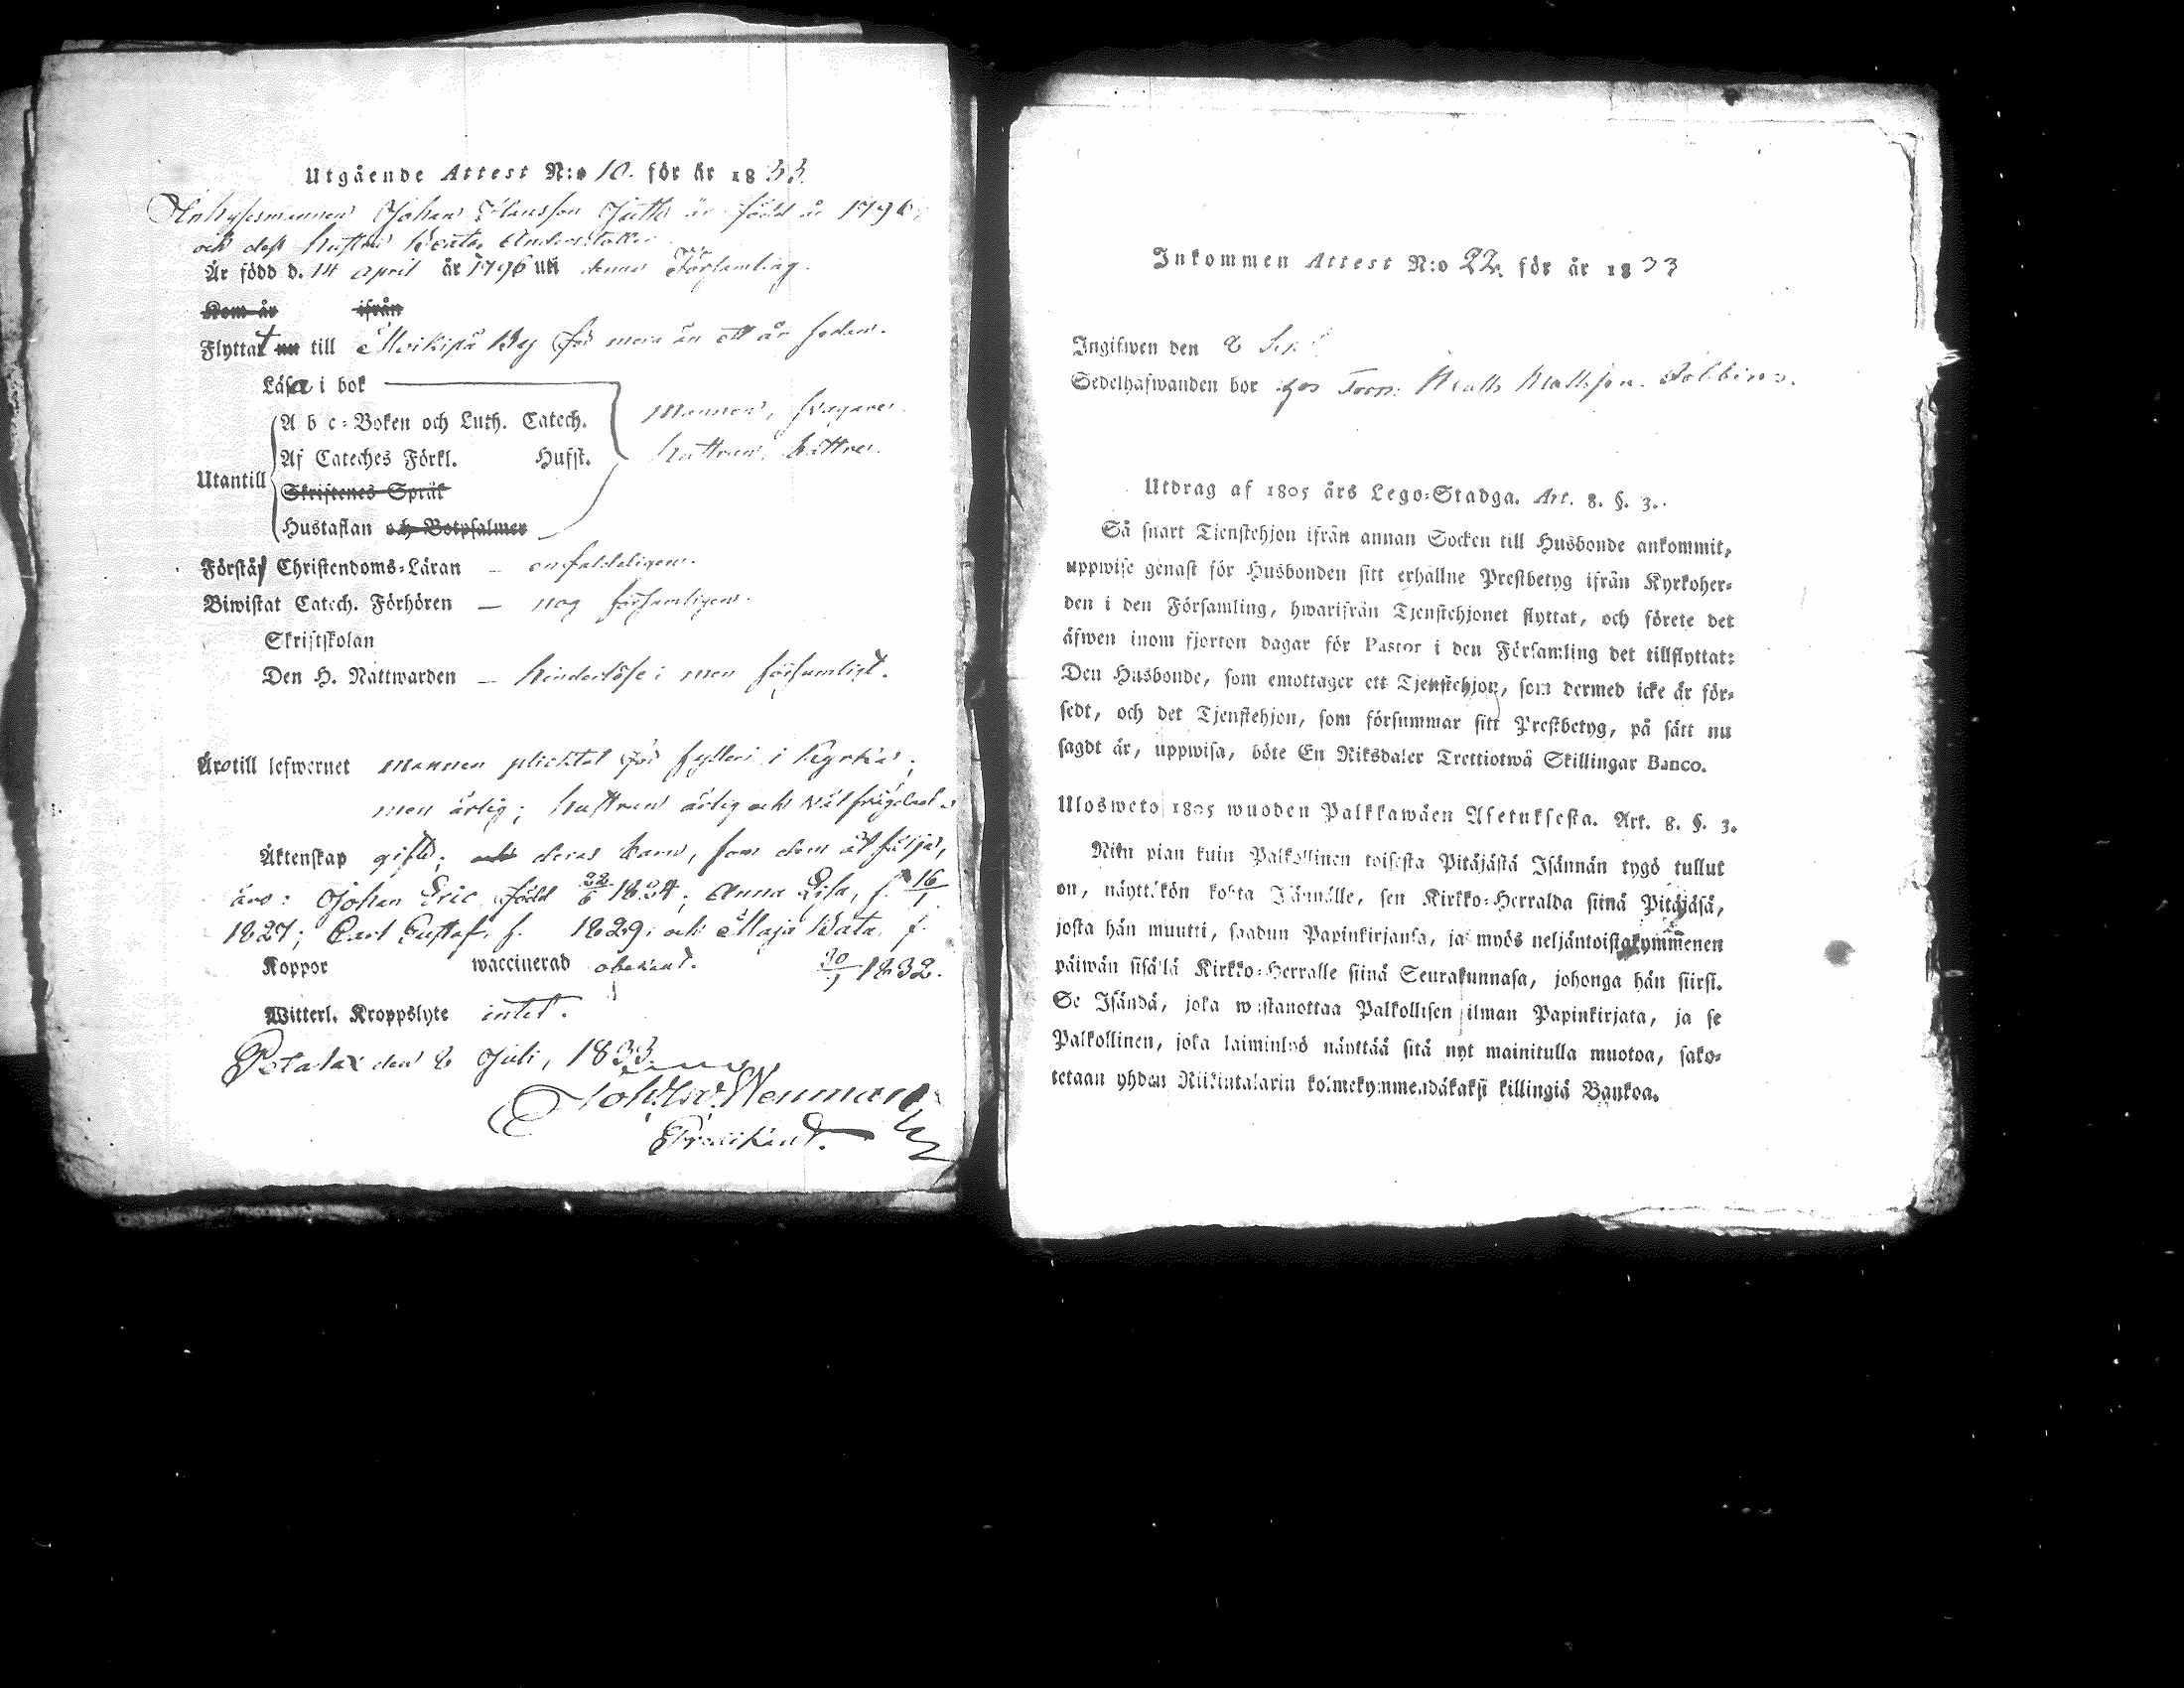 Utgående Attest N:o 10. för år 1833.
Inhysesmannen Johan Clausson Juth är född år 1796,
och dess hustru Beata Andersdotter
Är född d. 14 April år 1796 uti denna Församling.
Kom år ifrån
Flyttat nu till Moikipä By för mera än ett år sedan.
Läsa i bok
A b c-Boken och Luth. Catech. Mannen, svagare.
Af Cateches Förkl. Husst. hustrun, bättre.
Utantill
Skriftenes Språk
Hustaflan och Botpsalmer
Förstår Christendoms-Läran — enfaldeligen.
Biwistat Catech. Förhören — nog försumligen.
Skriftskolan
Den H. Nattwarden — hinderlöse; men försumligt.
Äro till lefwernet mannen plichtat för fylleri i Kyrkan;
men ärlig; hustrun ärlig och väl frägdad.
Äktenskap gifte; och deras barn, som dem åtfölja,
äro: Johan Eric, född 22/6 1824; Anna Lisa, f. 16/1
1827; Carl Gustaf, f. 1829; och Maja Beata, f.
Koppor waccinerad obekant. 30/1 1832.
Witterl. Kroppslyte intet.
Petalax den 8 Juli, 1833.
Neuman
Predikant.
Inkommen Attest N:o 22. för år 1833
Ingifwen den 8
Sedelhafwanden bor hos Torp. Matts Mattsson
Utdrag af 1805 års Lego-Stadga. Art. 8. §. 3.
Så snart Tjenstehjon ifrån annan Socken till Husbonde ankommit,
uppwise genast för Husbonden sitt erhållne Prestbetyg ifrån Kyrkoher-
den i den Församling, hwarifrån Tjenstehjonet flyttat, och förete det
äfwen inom fjorton dagar för Pastor i den Församling det tillflyttat:
Den Husbonde, som emottager ett Tjenstehjon, som dermed icke är för-
sedt, och det Tjenstehjon, som försummar sitt Prestbetyg, på sätt nu
sagdt är, uppwisa, böte En Riksdaler Trettiotwå Skillingar Banco.
Ulosweto 1805 wuoden Palkkawäen Asetuksesta. Art. 8. §. 3.
Niin pian kuin Palkollinen toisesta Pitäjästä Isännän tygö tullut
on, näyttäkön kohta Isännälle, sen Kirkko-Herralda siinä Pitäjäsä,
josta hän muutti, saadun Papinkirjansa, ja myös neljäntoistakymmenen
päiwän sisällä Kirkko-Herralle siinä Seurakunnasa, johonga hän siirsi.
Se Isändä, joka wastanottaa Palkollisen ilman Papinkirjata, ja se
Palkollinen, joka laiminlyö näyttää sitä nyt mainitulla muotoa, sako-
tetaan yhden Riikintalarin kolmekymmendäkaksi killingiä Bankoa.